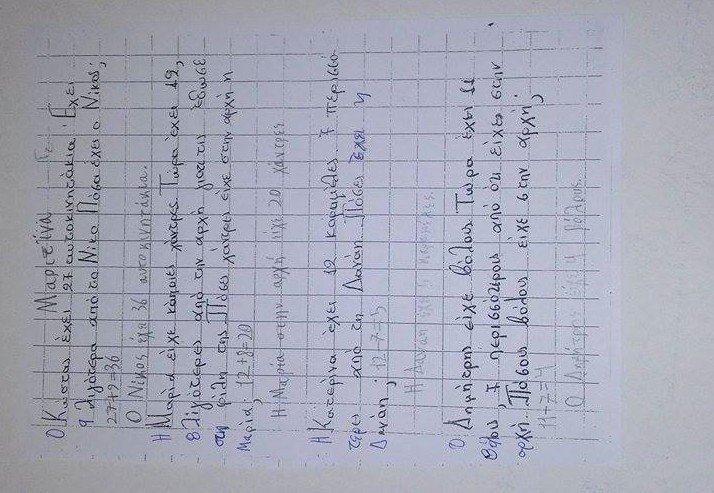 Μαριτίνα
Ο Κώστας έχει 27 αυτοκινητάκια. Έχει
9 λιγότερα από το Νίκο. Πόσα έχει ο Νίκος;
27+9=36
Ο Νίκος έχει 36 αυτοκινητάκια.
Η Μαρία είχε κάποιες χάντρες. Τώρα έχει 12,
8 λιγότερες από την αρχή γιατί έδωσε
στη φίλη της. Πόσες χάντρες είχε στην αρχή η
Μαρία; 12+8=20
Η Μαρία στην αρχή είχε 20 χάντρες
Η Κατερίνα έχει 12 καραμέλες, 7 περισσό-
τερες από τη Δανάη. Πόσες έχει η
Δανάη; 12-7=5
Η Δανάη έχει 5 καραμέλες.
Ο Δημήτρης είχε βόλους. Τώρα έχει 11
βόλους, 7 περισσότερους από ότι είχε στην
αρχή. Πόσους βόλους είχε στην αρχή;
11-7=4
Ο Δημήτρης είχε 4 βόλους.